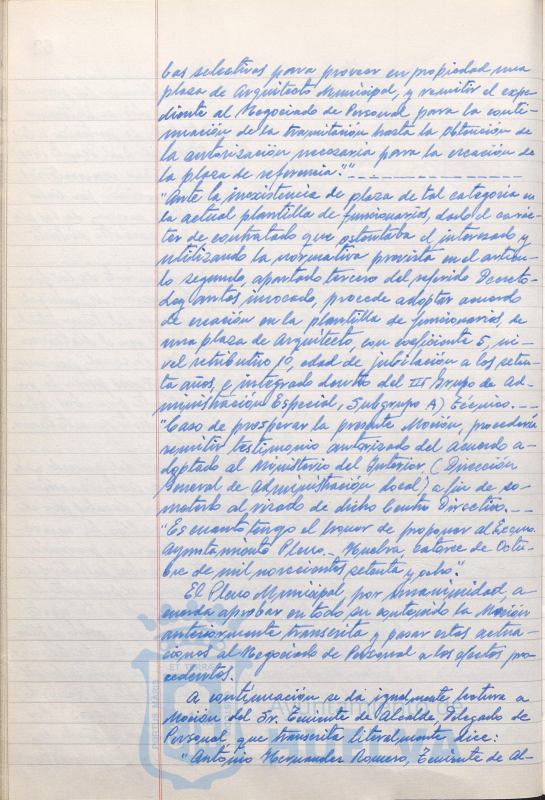 bas selectivas para proveer en propiedad una
plaza de Arquitecto Municipal, y remitir el expe-
diente al Negociado de Personal para la conti-
nuación de la tramitación hasta la obtención de
la autorización necesaria para la creación de
la plaza de referencia."
"Ante la inexistencia de plaza de tal categoría en
la actual plantilla de funcionarios, dado el carác-
ter de contratado que ostentaba el interesado y
utilizando la normativa prevista en el artícu-
lo segundo, apartado tercero del referido Decreto-
Ley antes invocado, procede adoptar acuerdo
de creación en la plantilla de funcionarios, de
una plaza de Arquitecto, con coeficiente 5, ni-
vel retributivo 10, edad de jubilación a los seten-
ta años, e integrado dentro del III Grupo de Ad-
ministración Especial, Subgrupo A) Técnicos.
"Caso de prosperar la presente Moción, procedería
remitir testimonio autorizado del acuerdo a-
doptado al Ministerio del Interior (Dirección
General de Administración Local) a fin de so-
meterlo al visado de dicho Centro Directivo.
"Es cuanto tengo el honor de proponer al Excmo.
Ayuntamiento Pleno.- Huelva, catorce de Octu-
bre de mil novecientos setenta y ocho".
El Pleno Municipal, por unanimidad, a-
cuerda aprobar en todo su contenido la Moción
anteriormente transcrita y pasar estas actua-
ciones al Negociado de Personal a los efectos pro-
cedentes.
A continuación se da igualmente lectura a
Moción del Sr. Teniente de Alcalde, Delegado de
Personal, que transcrita literalmente dice:
"Antonio Hernandez Romero, Teniente de Al-
ET TERRAE
PORTUS MARIS
Ayuntamiento de
HUELVA